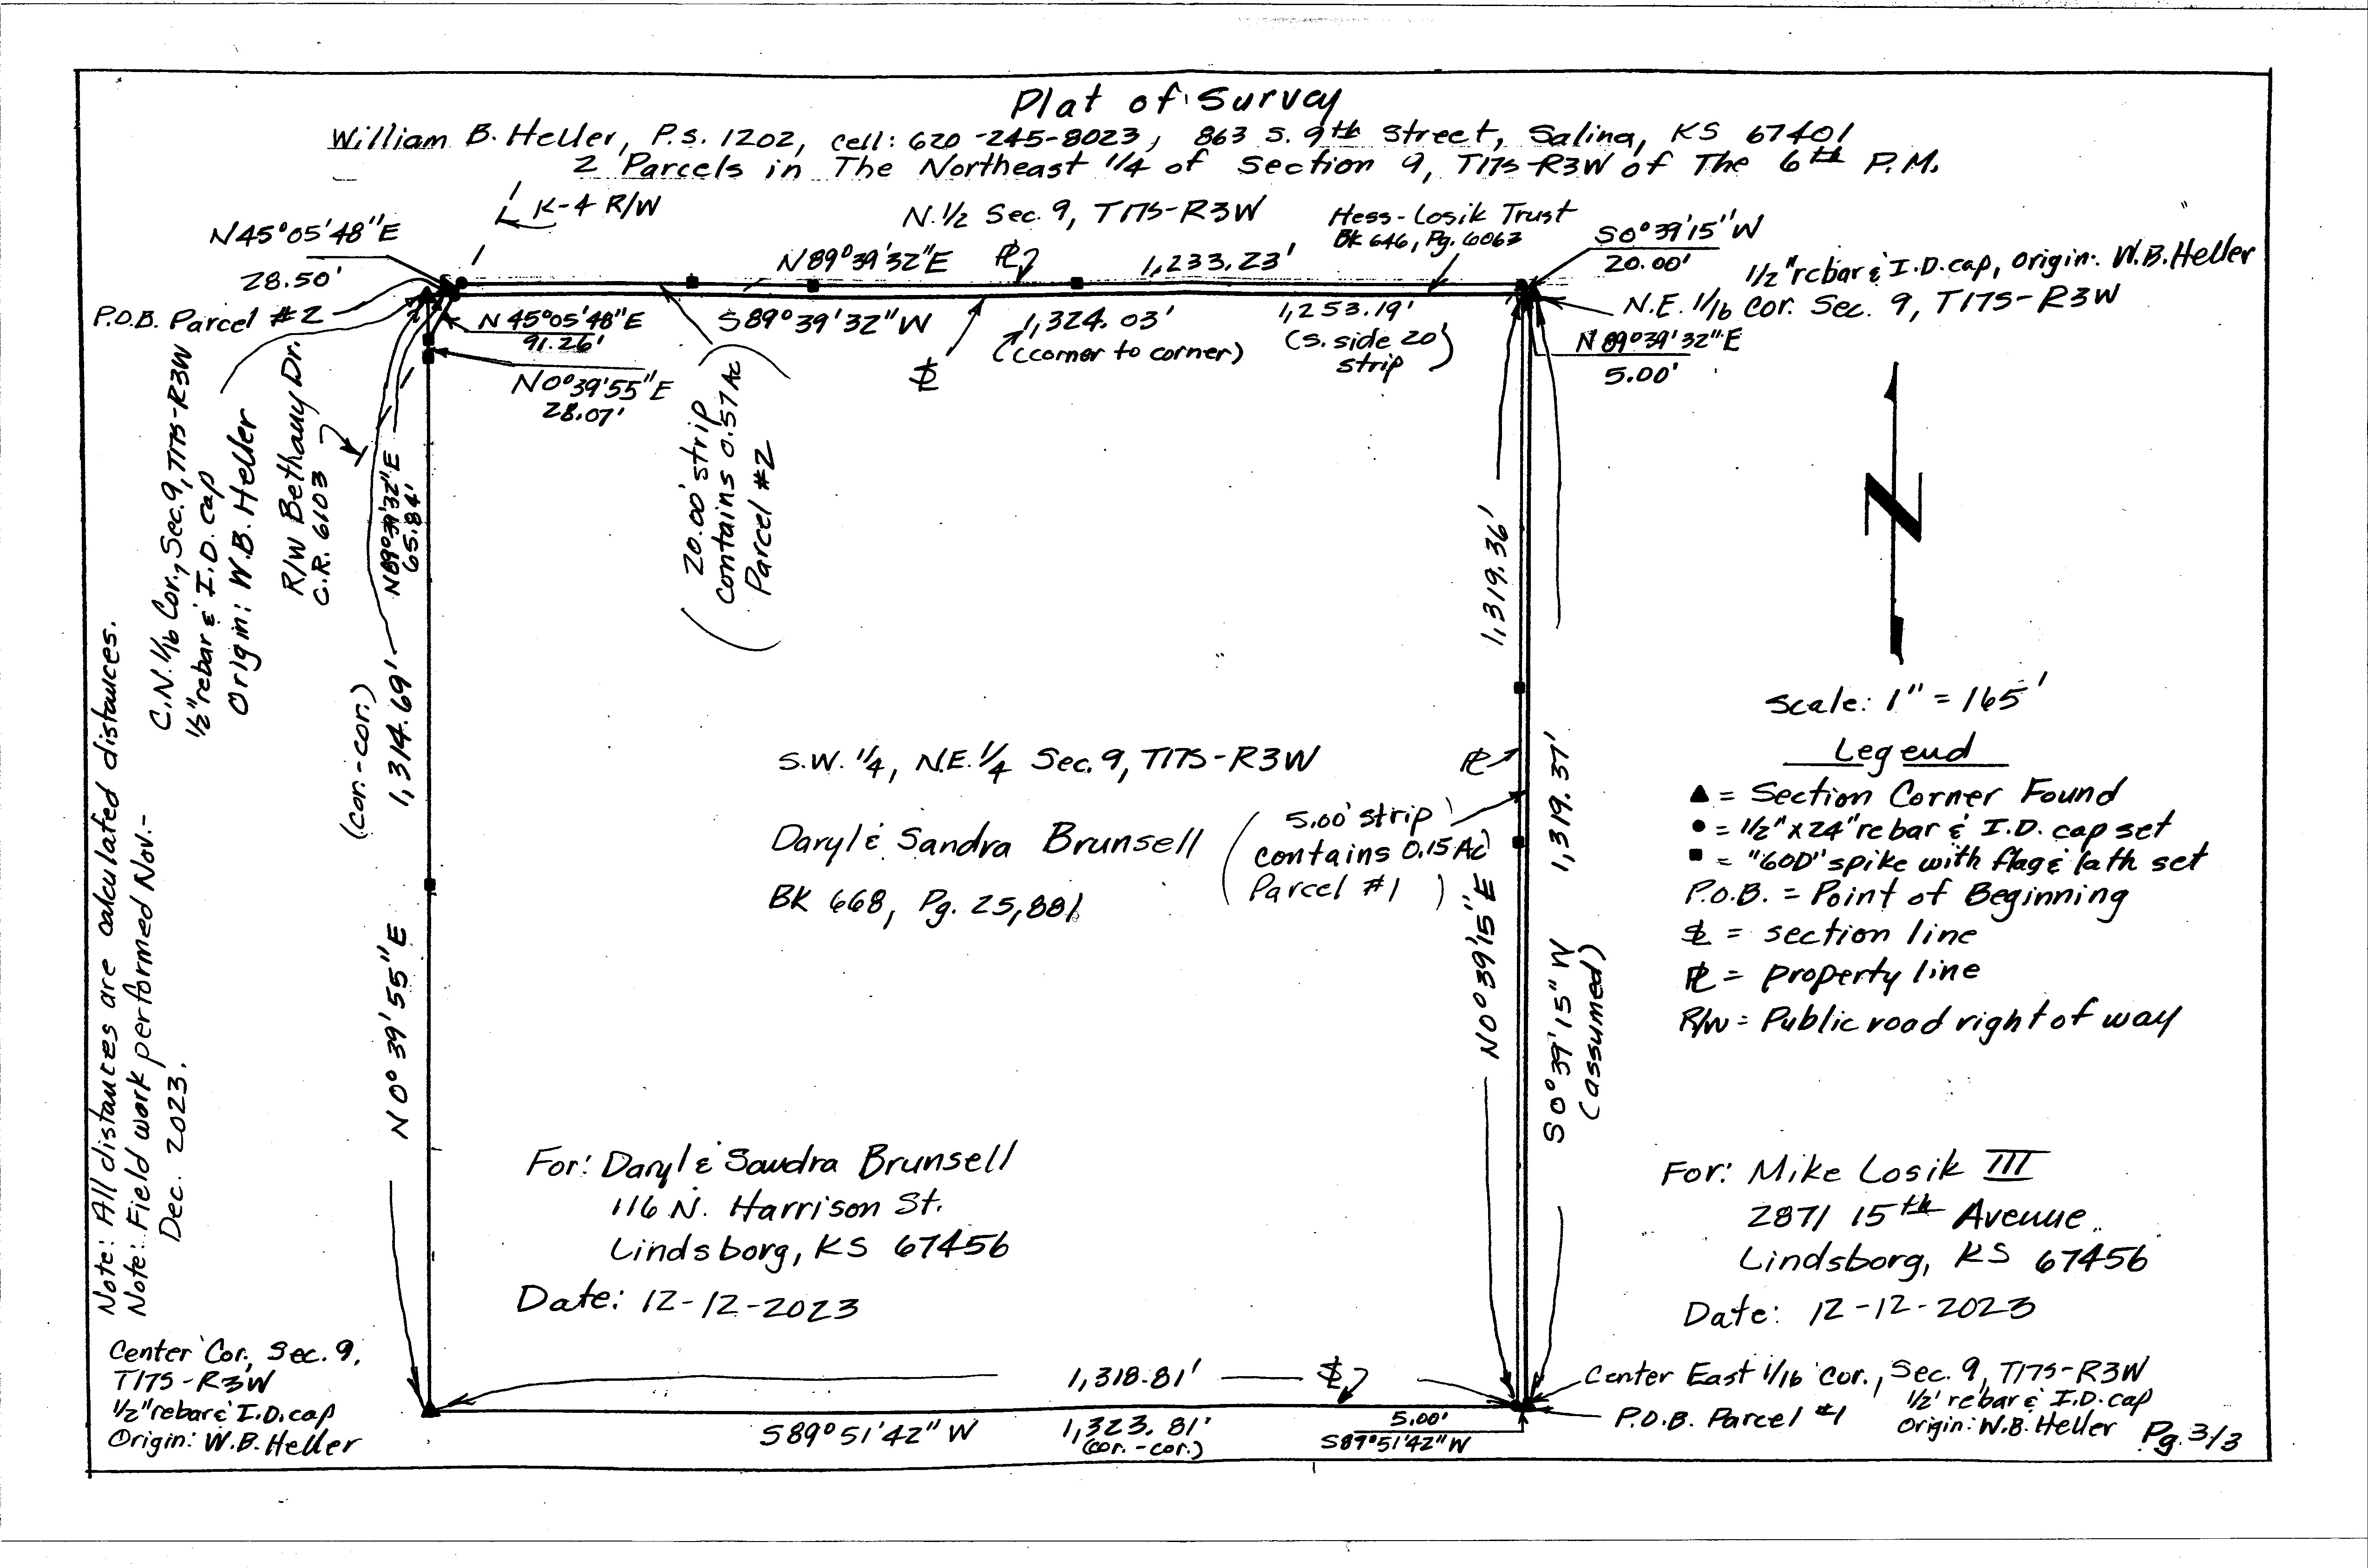 Plat of Survey
William B. Heller, P.S. 1202, cell: 620-245-8023, 863 S. 9th Street, Salina, KS 67401
2 Parcels in The Northeast 1/4 of Section 9, T17S-R3W of The 6th P.M.
K-4 R/W
N.1/2 Sec. 9, T17S-R3W
Hess-Losik Trust
BK 646, Pg. 6063
N45°05'48"E
28.50'
P.O.B. Parcel #2
N89°39'32"E
PL
1,233.23'
S0°39'15"W
20.00'
1/2" rebar & I.D. cap, Origin: W.B. Heller
N.E. 1/16 Cor. Sec. 9, T17S-R3W
N89°39'32"E
5.00'
N45°05'48"E
91.26'
N0°39'55"E
28.07'
S89°39'32"W
SL
1,324.03'
(corner to corner)
1,253.19'
(S. side 20'
strip)
C.N. 1/16 Cor., Sec. 9, T17S-R3W
1/2" rebar & I.D. cap
Origin: W.B. Heller
R/W Bethany Dr.
C.R. 6103
N89°39'32"E
65.84'
20.00' strip
contains 0.57 Ac
Parcel #2
N
Scale: 1" = 165'
Legend
▲ = Section Corner Found
● = 1/2" x 24" rebar & I.D. cap set
■ = "60D" spike with flag & lath set
P.O.B. = Point of Beginning
SL = section line
PL = property line
R/W = Public road right of way
1,314.69'
(cor.-cor.)
N0°39'55"E
1,319.36'
N0°39'15"E
1,319.37'
S0°39'15"W
(assumed)
PL
S.W. 1/4, N.E. 1/4 Sec. 9, T17S-R3W
Daryl & Sandra Brunsell
BK 668, Pg. 25,881
5.00' strip
contains 0.15 Ac
Parcel #1
Note: All distances are calculated distances.
Note: Field work performed Nov.-
Dec. 2023.
For: Daryl & Sandra Brunsell
116 N. Harrison St.
Lindsborg, KS 67456
Date: 12-12-2023
For: Mike Losik III
2871 15th Avenue
Lindsborg, KS 67456
Date: 12-12-2023
Center Cor., Sec. 9,
T17S-R3W
1/2" rebar & I.D. cap
Origin: W.B. Heller
1,318.81'
SL
S89°51'42"W
1,323.81'
(cor.-cor.)
5.00'
S89°51'42"W
Center East 1/16 Cor., Sec. 9, T17S-R3W
1/2' rebar & I.D. cap
Origin: W.B. Heller
P.O.B. Parcel #1
Pg. 3/3